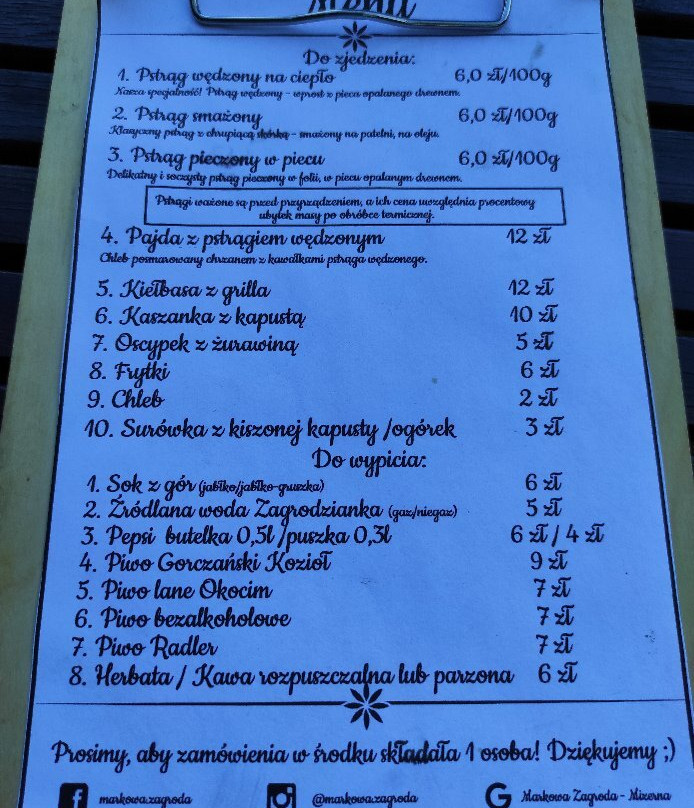 Menu
Do zjedzenia:
1. Pstrąg wędzony na ciepło 6,0 zł/100g
Nasza specjalność! Pstrąg wędzony - wprost z pieca opalanego drewnem.
2. Pstrąg smażony 6,0 zł/100g
Klasyczny pstrąg z chrupiącą skórką - smażony na patelni, na oleju.
3. Pstrąg pieczony w piecu 6,0 zł/100g
Delikatny i soczysty pstrąg pieczony w folii, w piecu opalanym drewnem.
Pstrągi ważone są przed przyrządzeniem, a ich cena uwzględnia procentowy
ubytek masy po obróbce termicznej.
4. Pajda z pstrągiem wędzonym 12 zł
Chleb posmarowany chrzanem z kawałkami pstrąga wędzonego.
5. Kiełbasa z grilla 12 zł
6. Kaszanka z kapustą 10 zł
7. Oscypek z żurawiną 5 zł
8. Frytki 6 zł
9. Chleb 2 zł
10. Surówka z kiszonej kapusty /ogórek 3 zł
Do wypicia:
1. Sok z gór (jabłko/jabłko-gruszka) 6 zł
2. Źródlana woda Zagrodzianka (gaz/niegaz) 5 zł
3. Pepsi butelka 0,5l /puszka 0,3l 6 zł / 4 zł
4. Piwo Gorczański Kozioł 9 zł
5. Piwo lane Okocim 7 zł
6. Piwo bezalkoholowe 7 zł
7. Piwo Radler 7 zł
8. Herbata / Kawa rozpuszczalna lub parzona 6 zł
Prosimy, aby zamówienia w środku składała 1 osoba! Dziękujemy ;)
markowa.zagroda @markowa.zagroda Markowa Zagroda - Mizerna